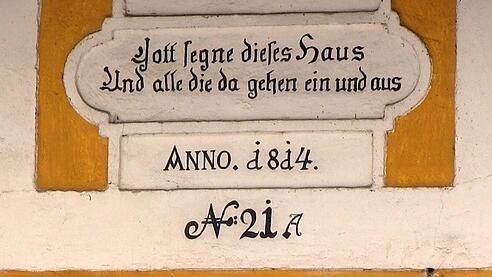 Gott segne dieses Haus
Und alle die da gehen ein und aus
ANNO. 1814.
No: 21A